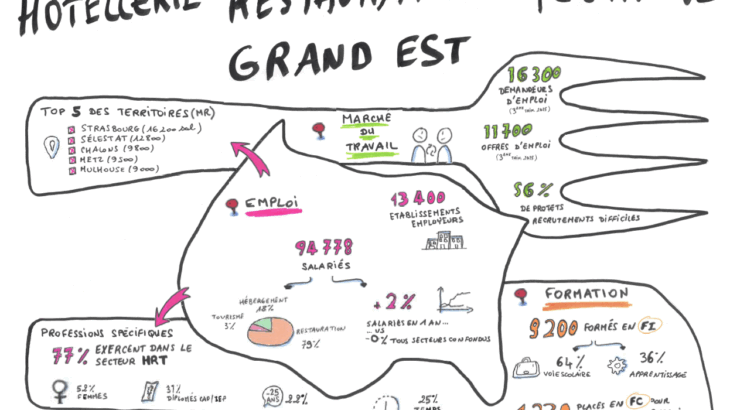 HOTELLERIE RESTAURATION
GRAND EST
TOP 5 DES TERRITOIRES (HR)
STRASBOURG (16 200 sal.)
SÉLESTAT (12 800)
CHALONS (9 800)
METZ (9 500)
MULHOUSE (9 000)
MARCHÉ
DU
TRAVAIL
16 300
DEMANDEURS
D'EMPLOI
11 700
OFFRES D'EMPLOI
56 %
DE PROJETS
RECRUTEMENTS DIFFICILES
EMPLOI
13 400
ETABLISSEMENTS
EMPLOYEURS
94 778
SALARIÉS
HÉBERGEMENT
18%
TOURISME
3%
RESTAURATION
79%
+2%
SALARIÉS EN 1 AN...
... VS
-0% TOUS SECTEURS CONFONDUS
PROFESSIONS SPÉCIFIQUES
77% EXERCENT DANS LE
SECTEUR HRT
52%
FEMMES
DIPLOMÉS CAP/BEP
-25
ANS
25%
TEMPS
FORMATION
9 200 FORMÉS EN FI
64%
VOIE SCOLAIRE
36%
APPRENTISSAGE
PLACÉS EN FC POUR